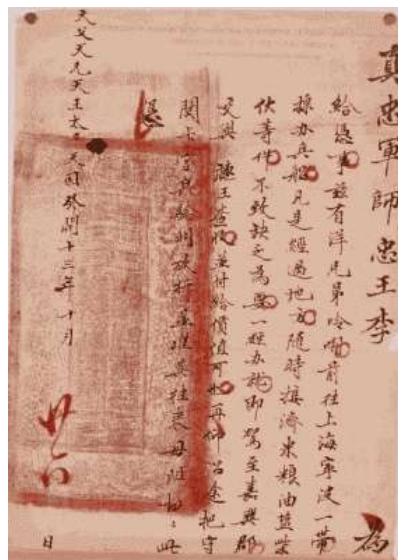 真忠軍師忠王李 為
給憑事茲有洋兄弟呤唎前往上海寧波一帶
採办兵船凡是經過地方隨時接濟米粮油鹽柴
伙等件不致缺乏為要一經办就即駕至嘉興郡
交與 聽王查收並付給價值可也再仰沿途把守
関卡官兵驗明放行並聽其往來毋阻切切此
憑
天父天兄天王太平天囯癸開十三年十月廿六日